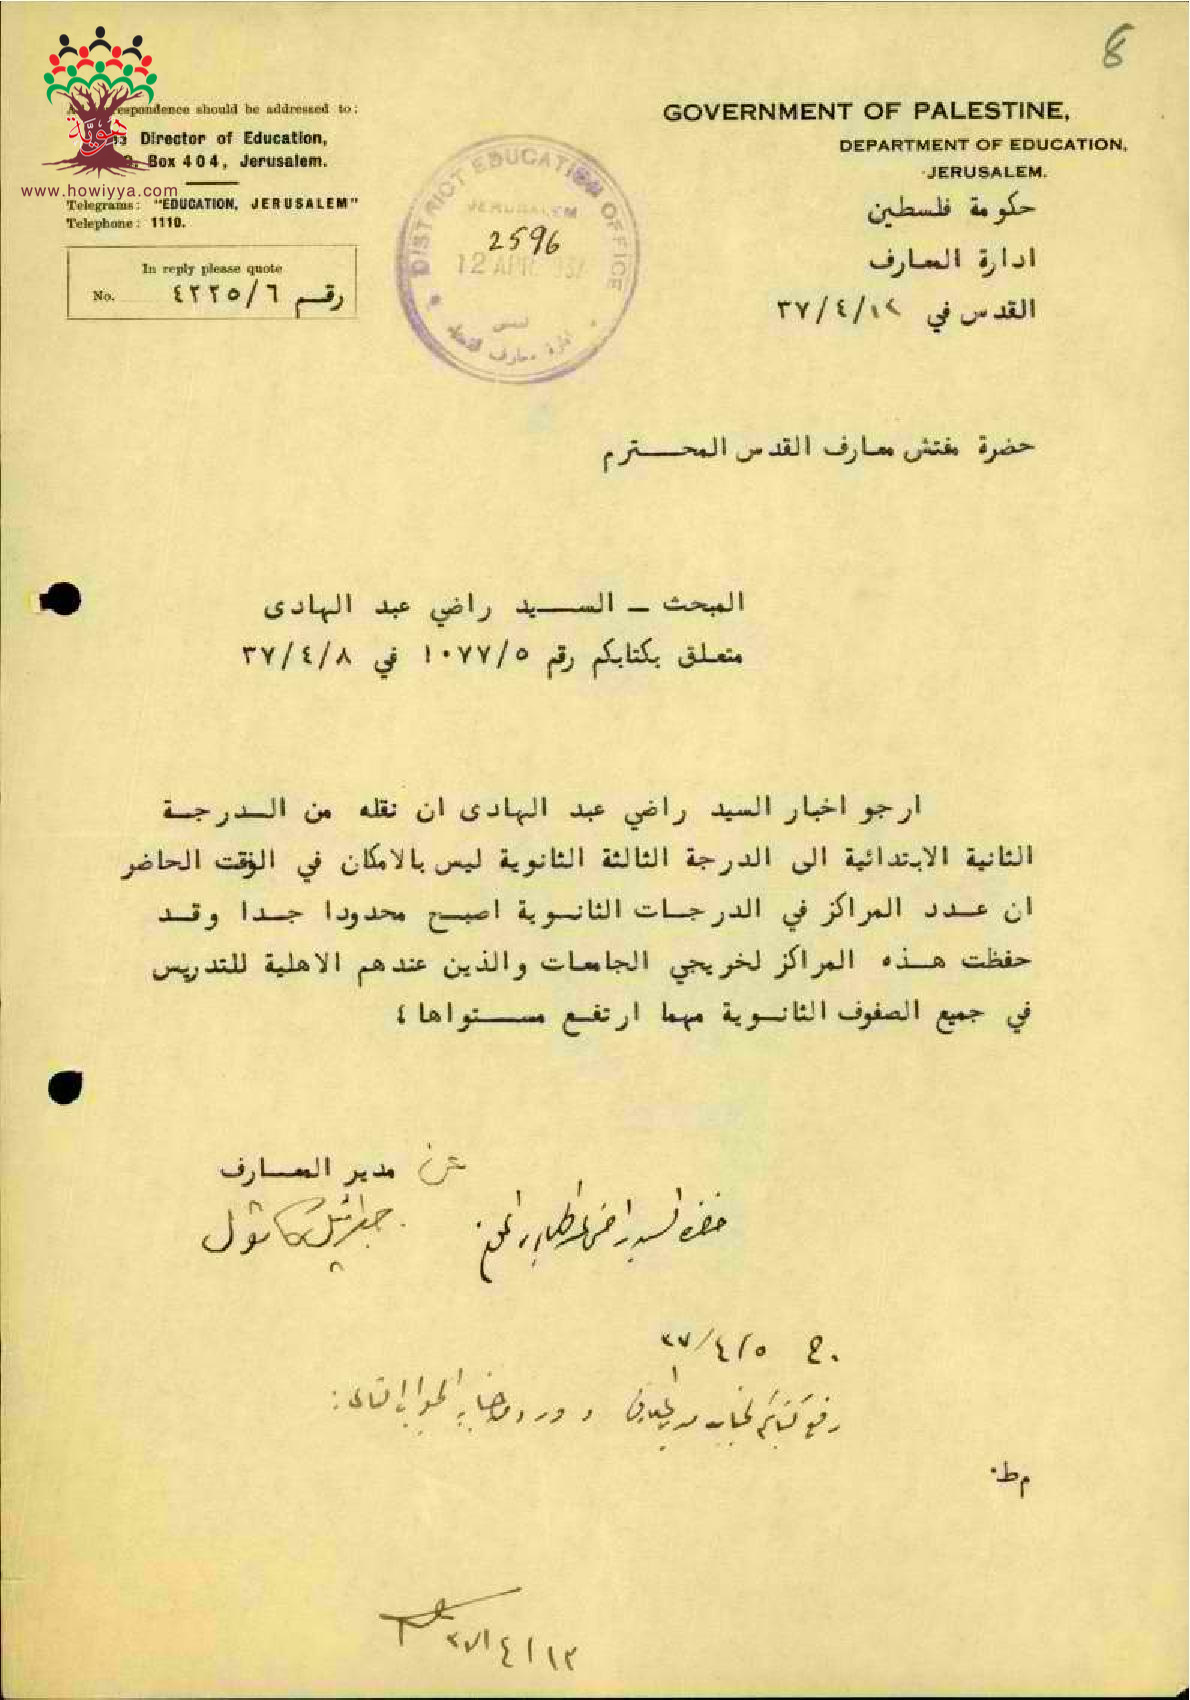 8
GOVERNMENT OF PALESTINE,
DEPARTMENT OF EDUCATION,
JERUSALEM.
حكومة فلسطين
ادارة المعارف
القدس في ١٢/٤/٣٧
espondence should be addressed to:
Director of Education,
Box 404, Jerusalem.
هوية
www.howiyya.com
Telegrams: "EDUCATION, JERUSALEM"
Telephone: 1110.
In reply please quote
No. رقم ٤٢٢٥/٦
DISTRICT EDUCATION OFFICE
JERUSALEM
2596
12 APR 1937
حضرة مفتش معارف القدس المحترم
المبحث - السيد راضي عبد الهادى
متعلق بكتابكم رقم ١٠٧٧/٥ في ٣٧/٤/٨
ارجو اخبار السيد راضي عبد الهادى ان نقله من الدرجة
الثانية الابتدائية الى الدرجة الثالثة الثانوية ليس بالامكان في الوقت الحاضر
ان عدد المراكز في الدرجات الثانوية اصبح محدودا جدا وقد
حفظت هذه المراكز لخريجي الجامعات والذين عندهم الاهلية للتدريس
في جميع الصفوف الثانوية مهما ارتفع مستواها ؛
عن مدير المعارف
جبرائيل كاتول
حضرة السيد راضي عبد الهادي المحترم
٣٧/٤/٥
رفع كتابكم لجناب مدير المعارف وورد من جنابه الجواب التالي:
م ط٠
٣٧/٤/١٣